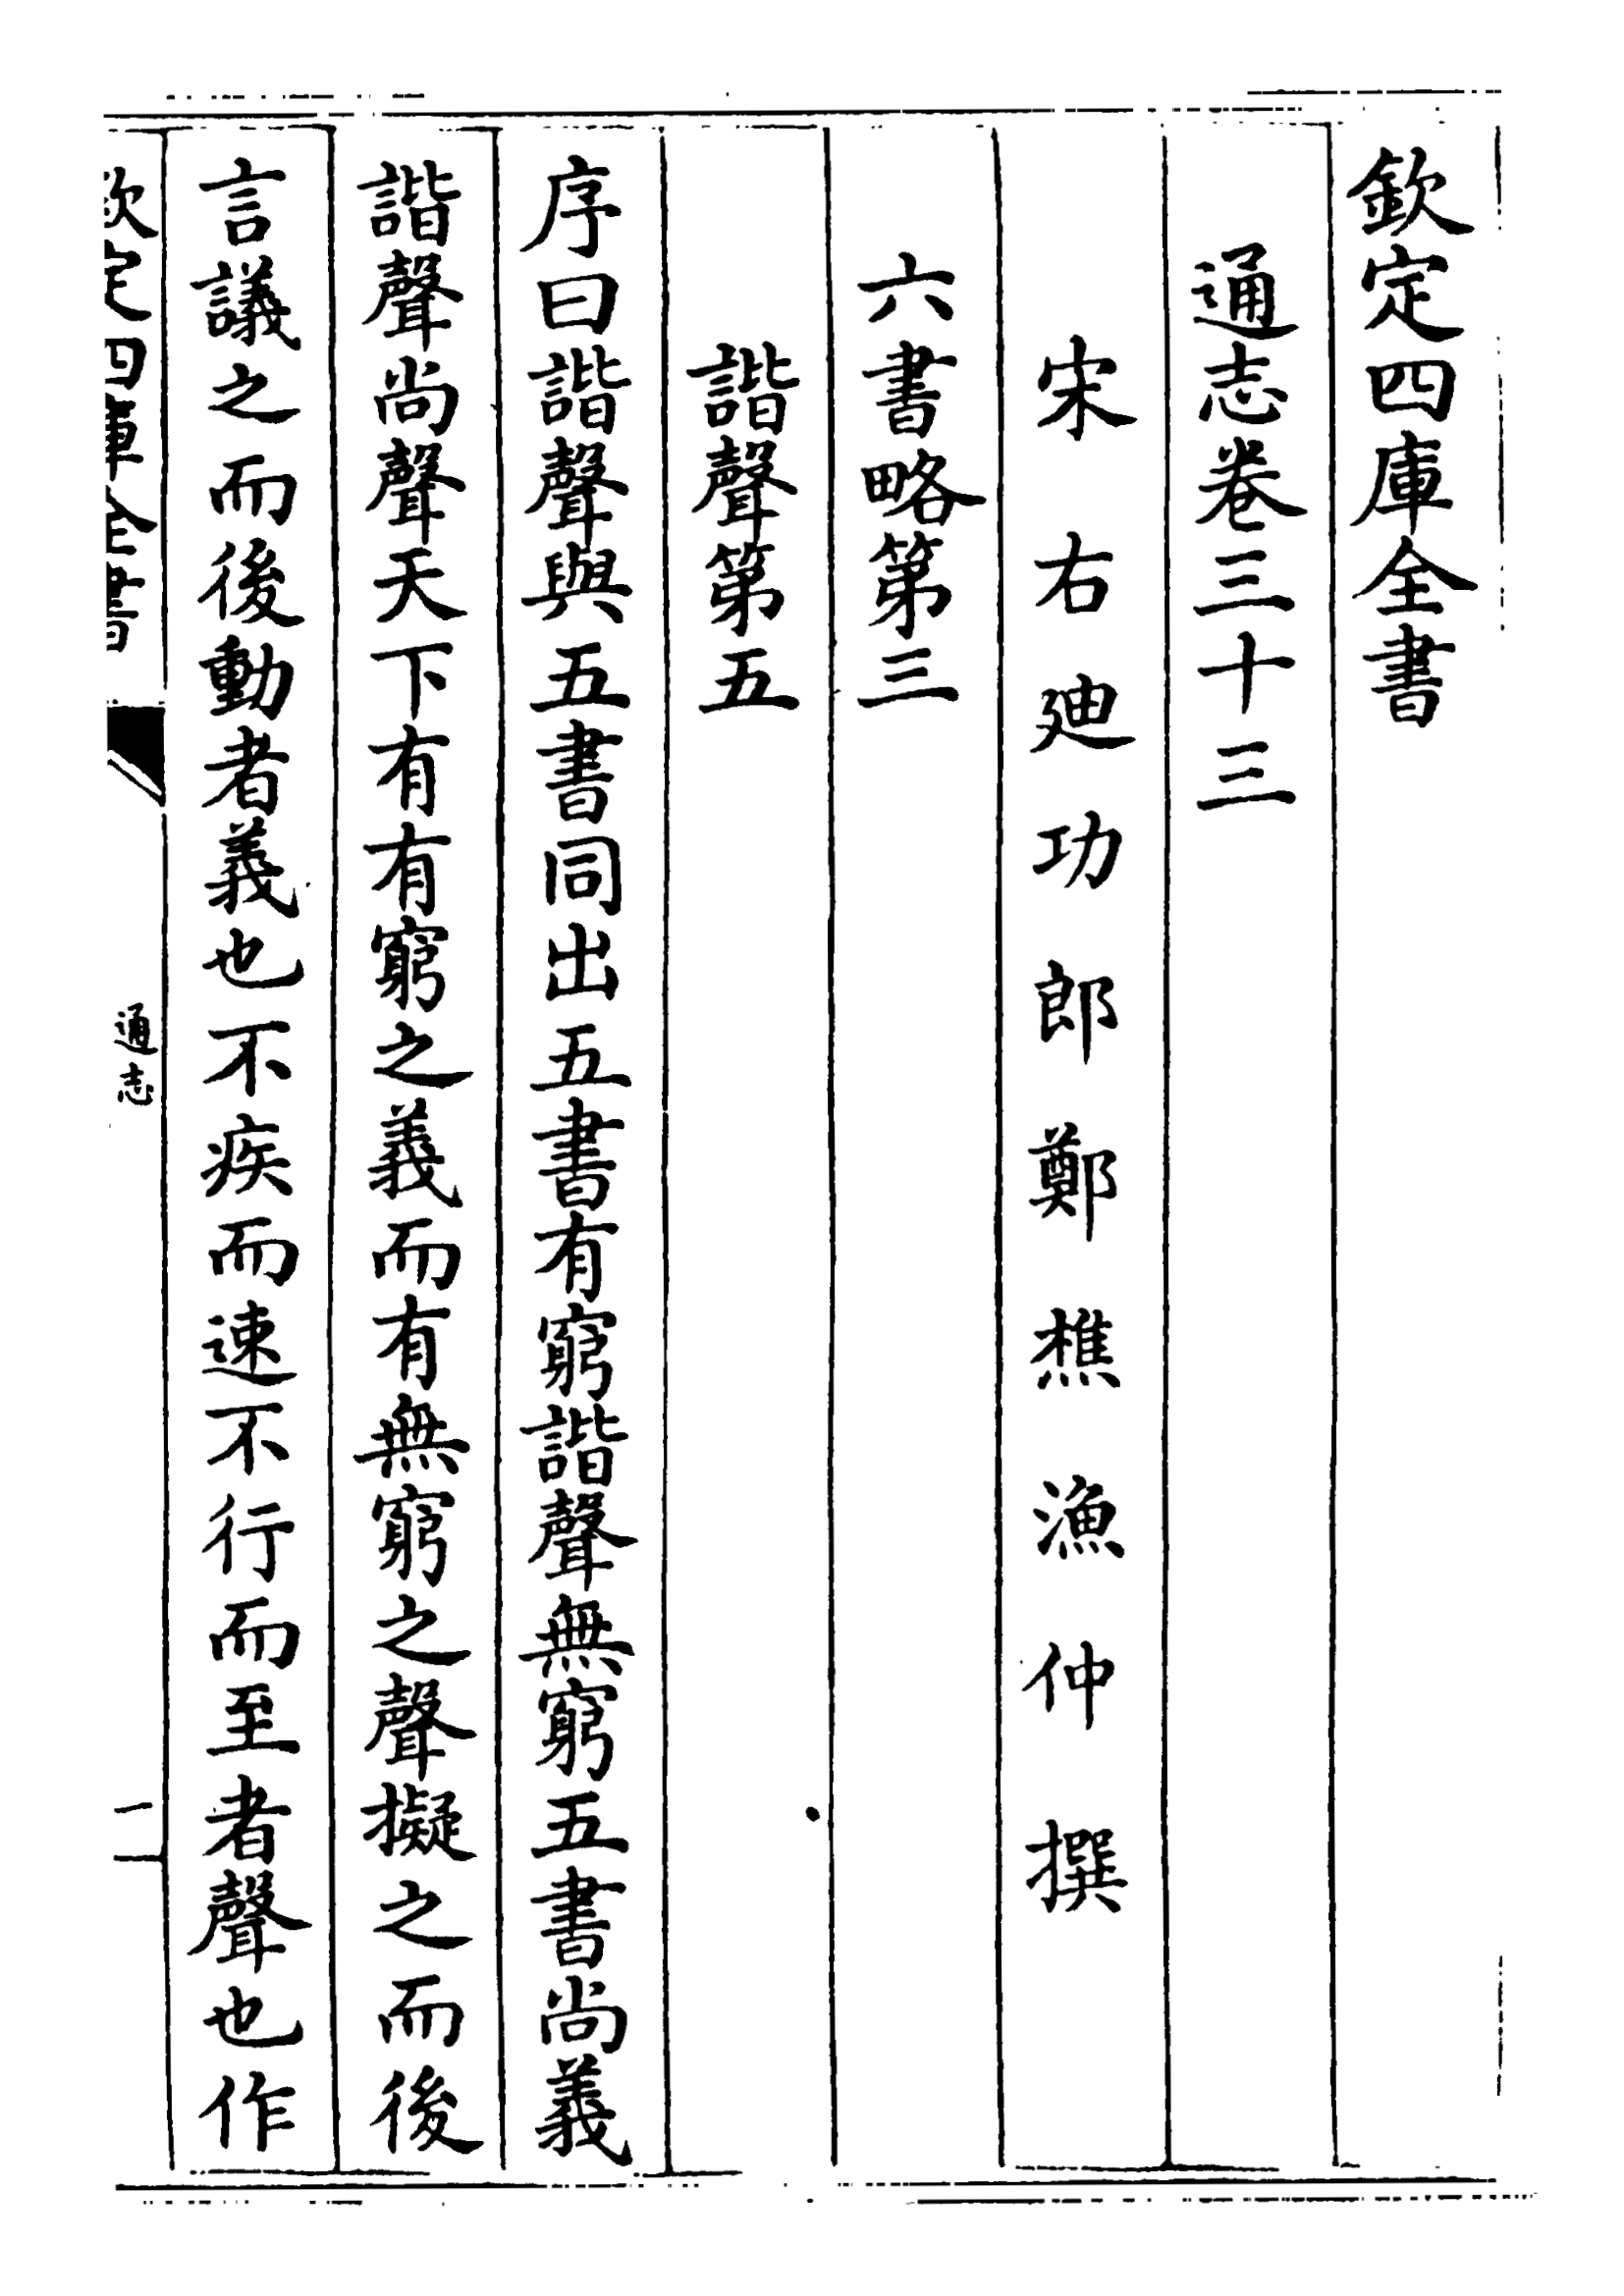 欽定四庫全書
通志卷三十三
宋右廸功郎鄭樵漁仲撰
六書略第三
諧聲第五
序曰諧聲與五書同出五書有窮諧聲無窮五書尚義
諧聲尚聲天下有有窮之義而有無窮之聲擬之而後
言議之而後動者義也不疾而速不行而至者聲也作
欽定四庫全書
通志
一